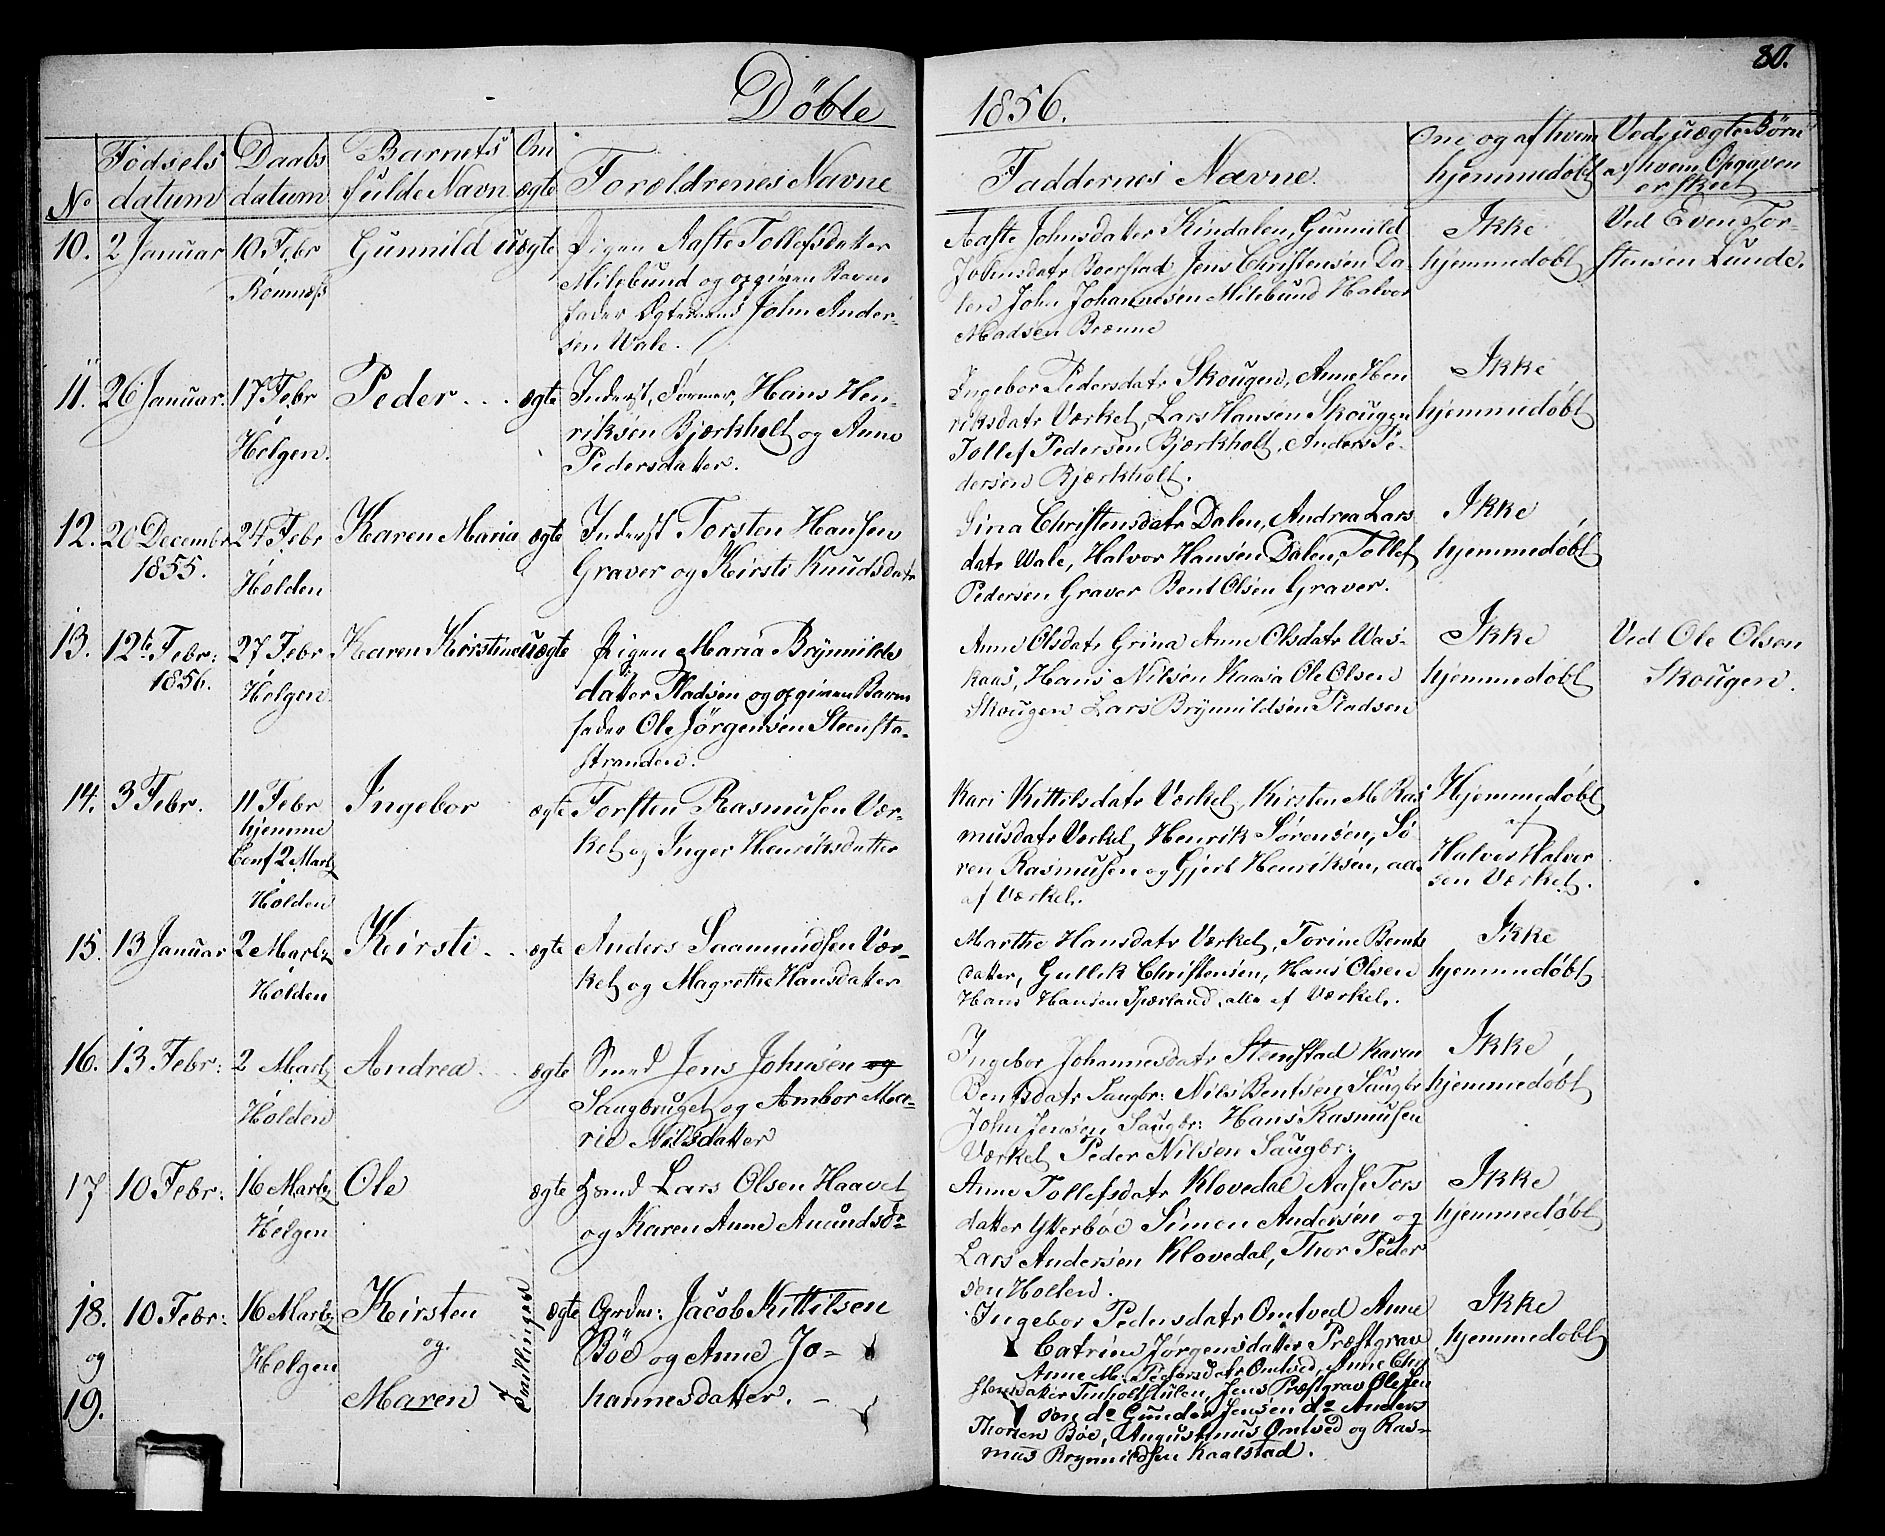 Døbte
1856.
80.
No
Fødsels datum
Daabs datum
Barnets fulde Navn
Om ægte
Forældrenes Navne
Faddernes Navne.
Om og af hvem hjemmedøbt
Ved uægte Børn af hvem Opgaven er skeet
10. 2 Januar
10 Febr
Romnæs
Gunnild
uægte
Pigen Aaste Tollefsdatter
Milebund og opgiven Barne
fader Ægtemand John Ander-
sen Wale.
Aaste Johnsdatter Kindalen, Gunnild
Johnsdatr Boerstad Jens Christensen Da
len John Johannesen Milebund Halvor
Madsen Brænne
Ikke
hjemmedøbt
Ved Even Tor-
stensen Lunde.
11. 26 Januar.
17 Febr
Helgen.
Peder
ægte
Inderst, Former, Hans Hen-
riksen Bjærkholt og Anne
Pedersdatter.
Ingebor Pedersdatr Skougen, Anne Hen
riksdatr Værket, Lars Hansen Skougen
Tollef Pedersen Bjærkholt, Anders Pe-
dersen Bjærkholt.
Ikke
hjemmedøbt
12. 20 Decembr
1855.
24 Febr
Holden
Karen Maria
ægte
Inderst Torsten Hansen
Graver og Kirsti Knudsdatr
Sina Christensdatr Dalen, Andrea Lars
datr Wale, Halvor Hansen Dalen, Tollef
Pedersen Graver Bent Olsen Graver.
Ikke
hjemmedøbt
13. 12te Febr:
1856.
27 Febr
Helgen.
Karen Kirstine
uægte
Pigen Maria Brynnilds
datter Pladsen og opgiven Barne
fader Ole Jørgensen Steensta-
stranden.
Anne Olsdatr Grina Anne Olsdatr Was-
kaas, Hans Nilsen Kaasa Ole Olsen
Skougen Lars Brynnildsen Pladsen
Ikke
hjemmedøbt
Ved Ole Olsen
Skougen.
14. 3 Febr.
11 Febr
hjemme
Conf 2 Martz
Holden
Ingebor
ægte
Torsten Rasmusen Vær-
ket og Inger Henriksdatter
Kari Kittilsdatr Værket, Kirsten M. Ras
musdatr Værket, Henrik Sørensen, Sø
ren Rasmusen og Gjert Henriksen, alle
af Værket.
Hjemmedøbt
af
Halvor Halvor
sen Værket.
15. 13 Januar
2 Martz
Holden
Kirsti
ægte
Anders Saamundsen Vær-
ket og Magrethe Hansdatter
Marthe Hansdatr Værket, Torine Bents
datter, Gullik Christensen, Hans Olsen
Hans Hansen Sperland, alle af Værket.
Ikke
hjemmedøbt
16. 13 Febr:
2 Martz
Holden
Andrea
ægte
Smed Jens Johnsen og
Saugbruget og Ambor Ma-
rie Nilsdatter
Ingebor Johannesdatr Stenstad Karen
Bentsdatr Saugbr: Nils Bentsen Saugbr
John Jensen Saugbr: Hans Rasmusen
Værket Peder Nilsen Saugbr:
Ikke
hjemmedøbt
17 10 Febr:
16 Martz
Helgen
Ole
ægte
Lars Olsen Haavet
og Karen Anne Amundsd:
Anne Tollefsdatr Klovedal Aase Tors
datter Ytterbøe Simon Andersen og
Lars Andersen Klovedal, Thor Peder
sen Holten.
Ikke
hjemmedøbt
18. 10 Febr:
og
19.
16 Martz
Helgen
Kirsten
og
Maren
Tvillinger
ægte
Grdm: Jacob Kittilsen
Bøe og Anne Jo-
hannesdatter.
Ingebor Pedersdatr Omtved Anne
Catrine Jørgensdatter Præstgrav
Anne M. Pedersdatr Omtved, Anne Chri
stensdatter Tinholthulen, Jens Præstgrav Ole Jen
sen do Gunder Jensen do Anders
Thorsen Bøe, Augustinus Omtved og Ras-
mus Brynnildsen Kaalstad.
Ikke
hjemmedøbt